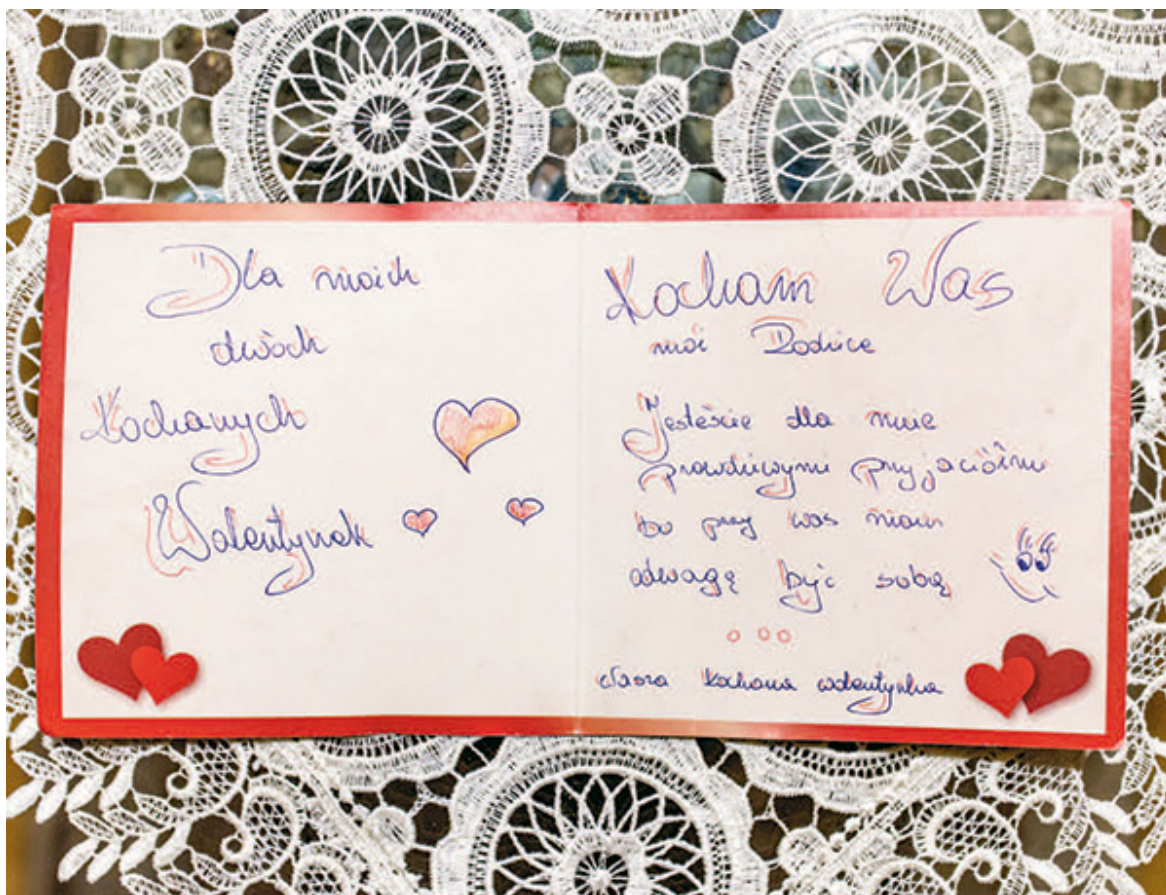 Dla moich
dwóch
Kochanych
Walentynek
Kocham Was
moi Rodzice
Jesteście dla mnie
prawdziwymi przyjaciółmi
bo przy was mam
odwagę być sobą
Wasza kochana walentynka